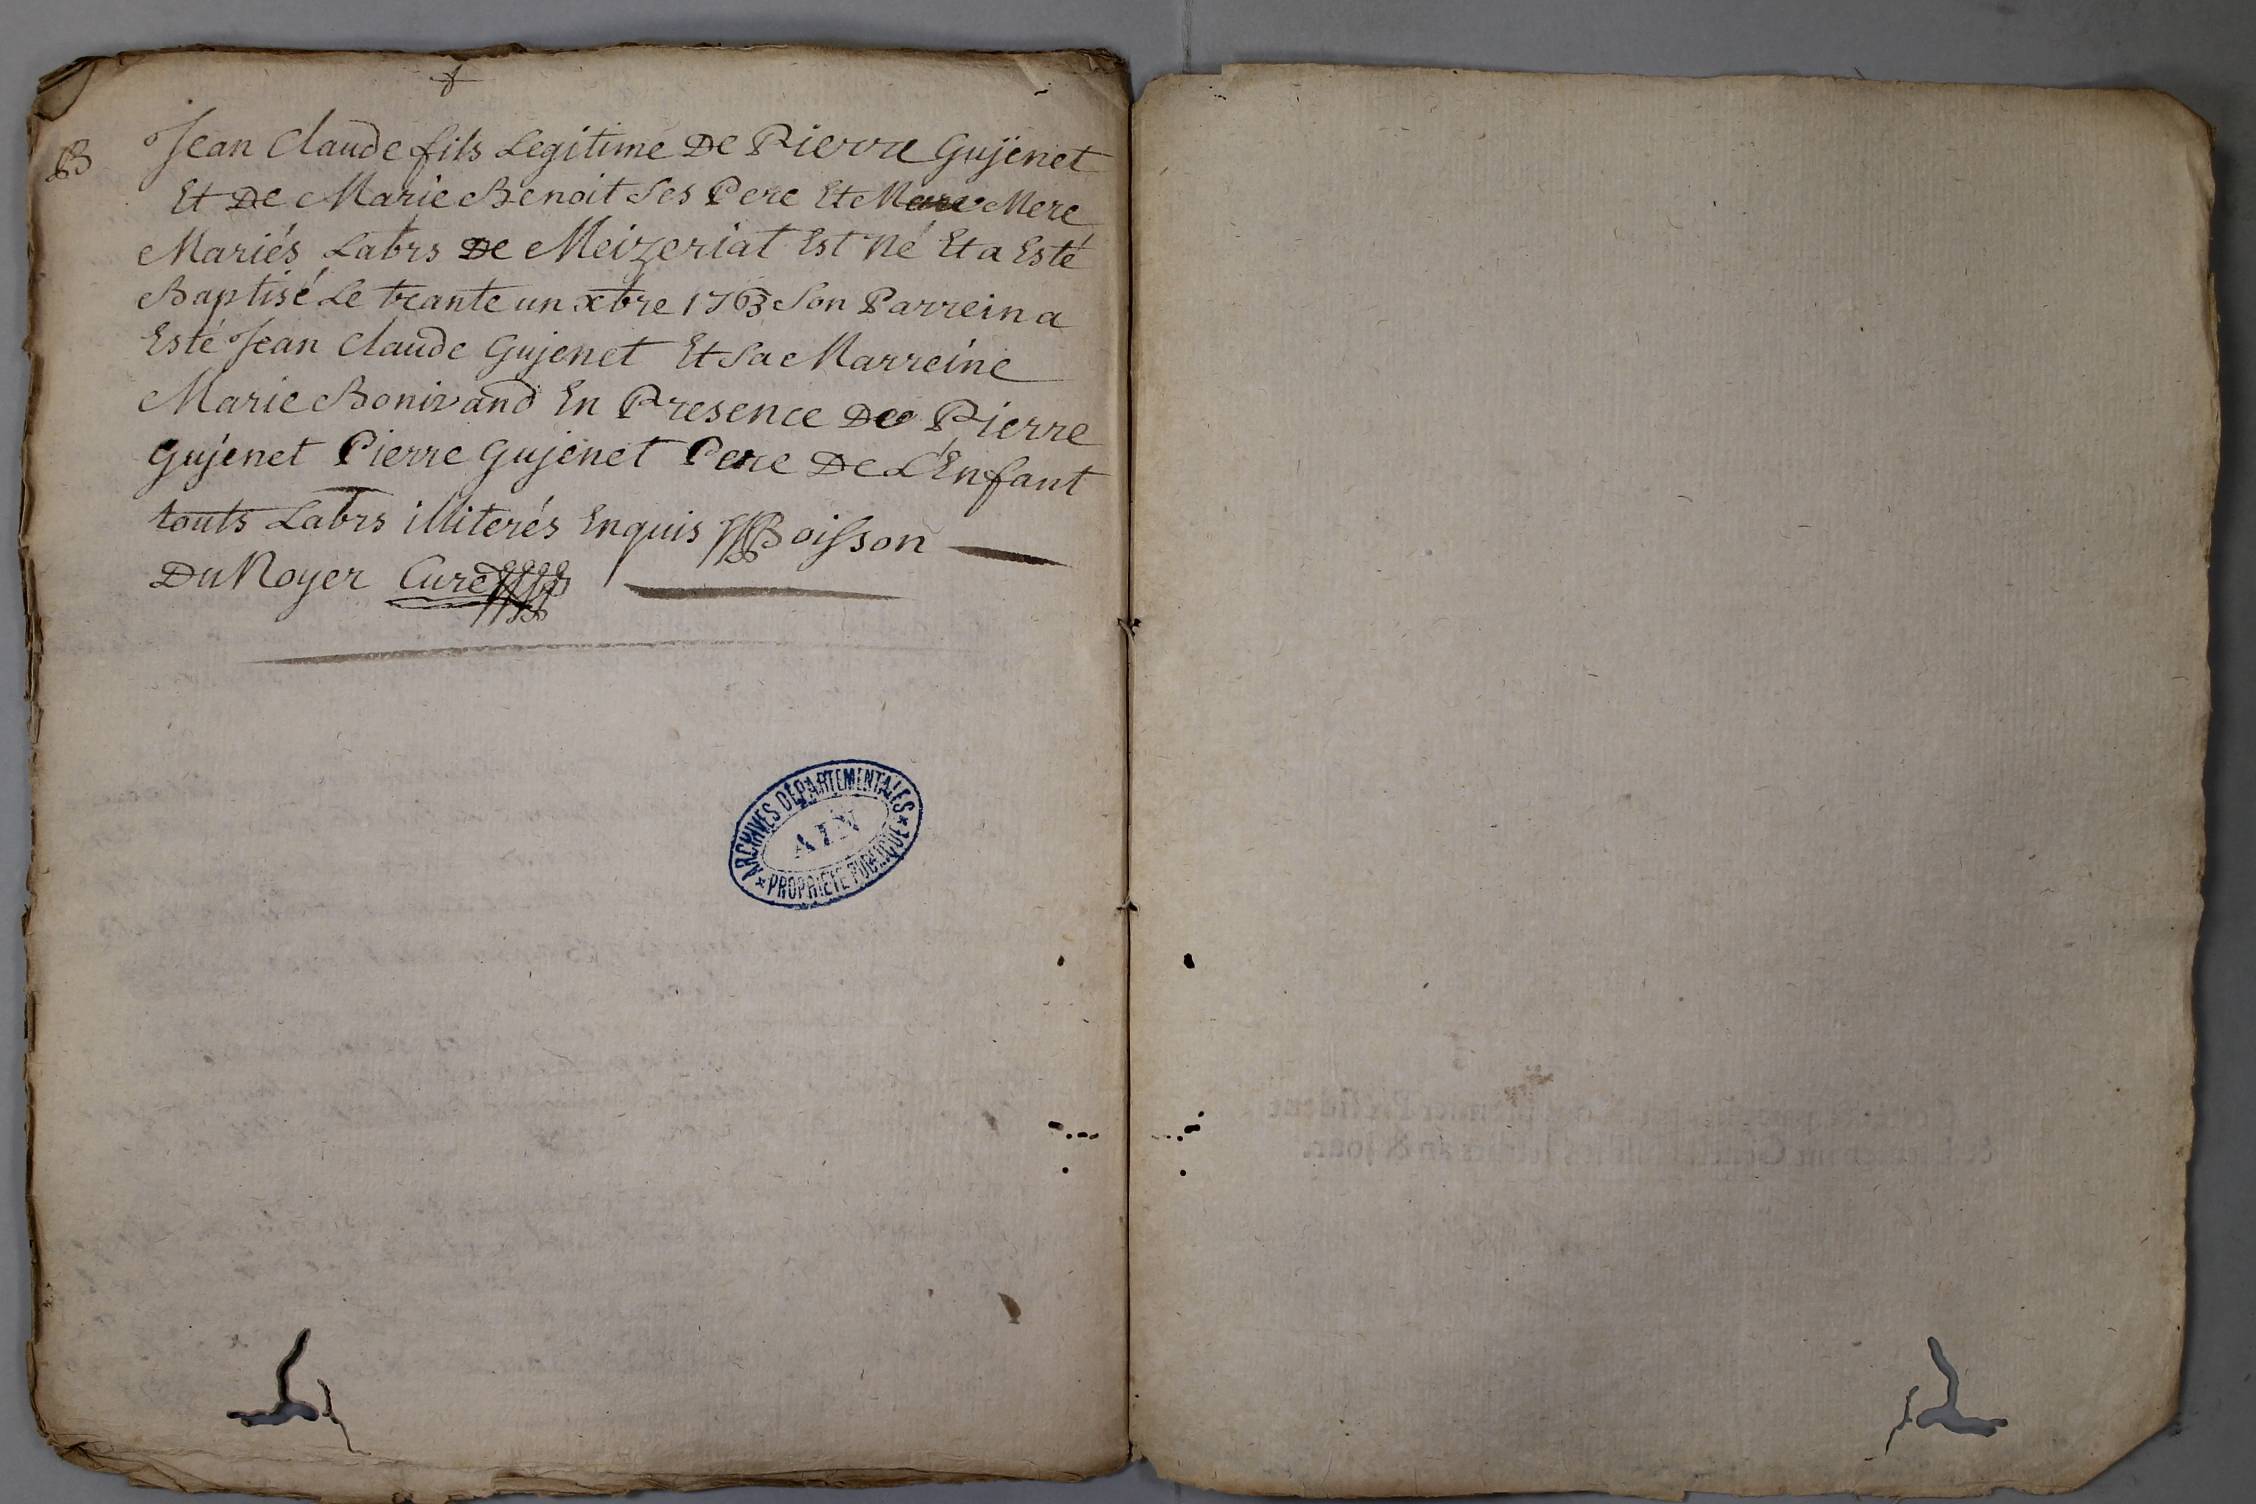 B
Jean Claude fils Legitime De Pierre Gujenet
Et De Marie Benoit Ses Pere Et Mere
Mariés Labrs De Meizeriat Est Né Et a Esté
Baptisé Le trante un xbre 1763 Son Parrein a
Esté Jean Claude Gujenet Et Sa Marreine
Marie Bonivand En Presence De Pierre
Gujenet Pierre Gujenet Pere De L'Enfant
touts Labrs illiterés Enquis Boisson
Du Noyer Curé
ARCHIVES DÉPARTEMENTALES
AIN
PROPRIÉTÉ PUBLIQUE